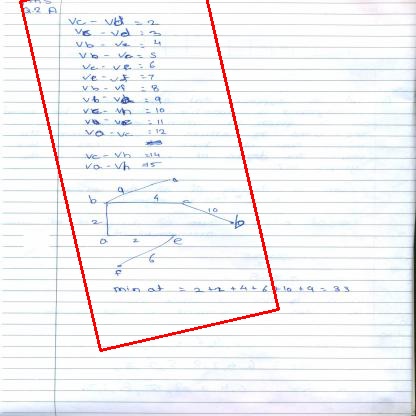 Q.2 A
vc - vd = 2
vd = 3
vb - ve = 4
vb - va = 5
vc - ve = 6
ve - vf = 7
vb - vf = 8
vb - = 9
- vh = 10
= 11
va - vc = 12
vc - vh = 14
va - vh = 15
9
b 4 c
2 10 b
a 2 e
6
f
min at = 2+2+4+6+10+9 = 33